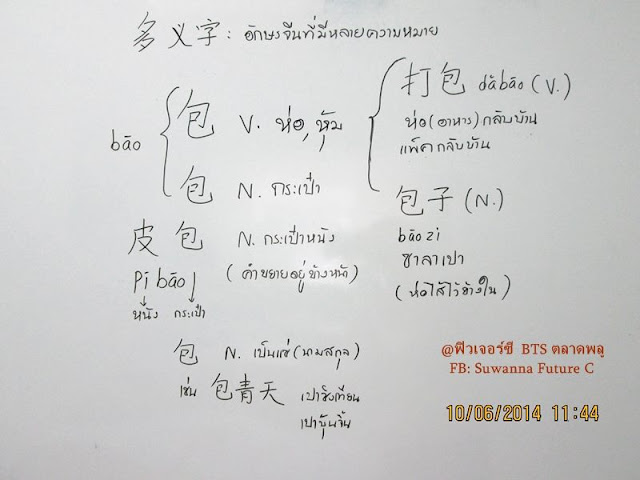 多义字: อักษรจีนที่มีหลายความหมาย
bāo
包 V. ห่อ, หุ้ม
包 N. กระเป๋า
打包 dǎbāo (V.)
ห่อ(อาหาร)กลับบ้าน
แพ็คกลับบ้าน
包子 (N.)
bāo zi
ซาลาเปา
(ห่อไส้ไว้ข้างใน)
皮包 N. กระเป๋าหนัง
Pí bāo (คำขยายอยู่ข้างหน้า)
หนัง กระเป๋า
包 N. เป็นแซ่(นามสกุล)
เช่น 包青天 เปาชิงเทียน
เปาบุ้นจิ้น
@ฟิวเจอร์ซี BTS ตลาดพลู
FB: Suwanna Future C
10/06/2014 11:44